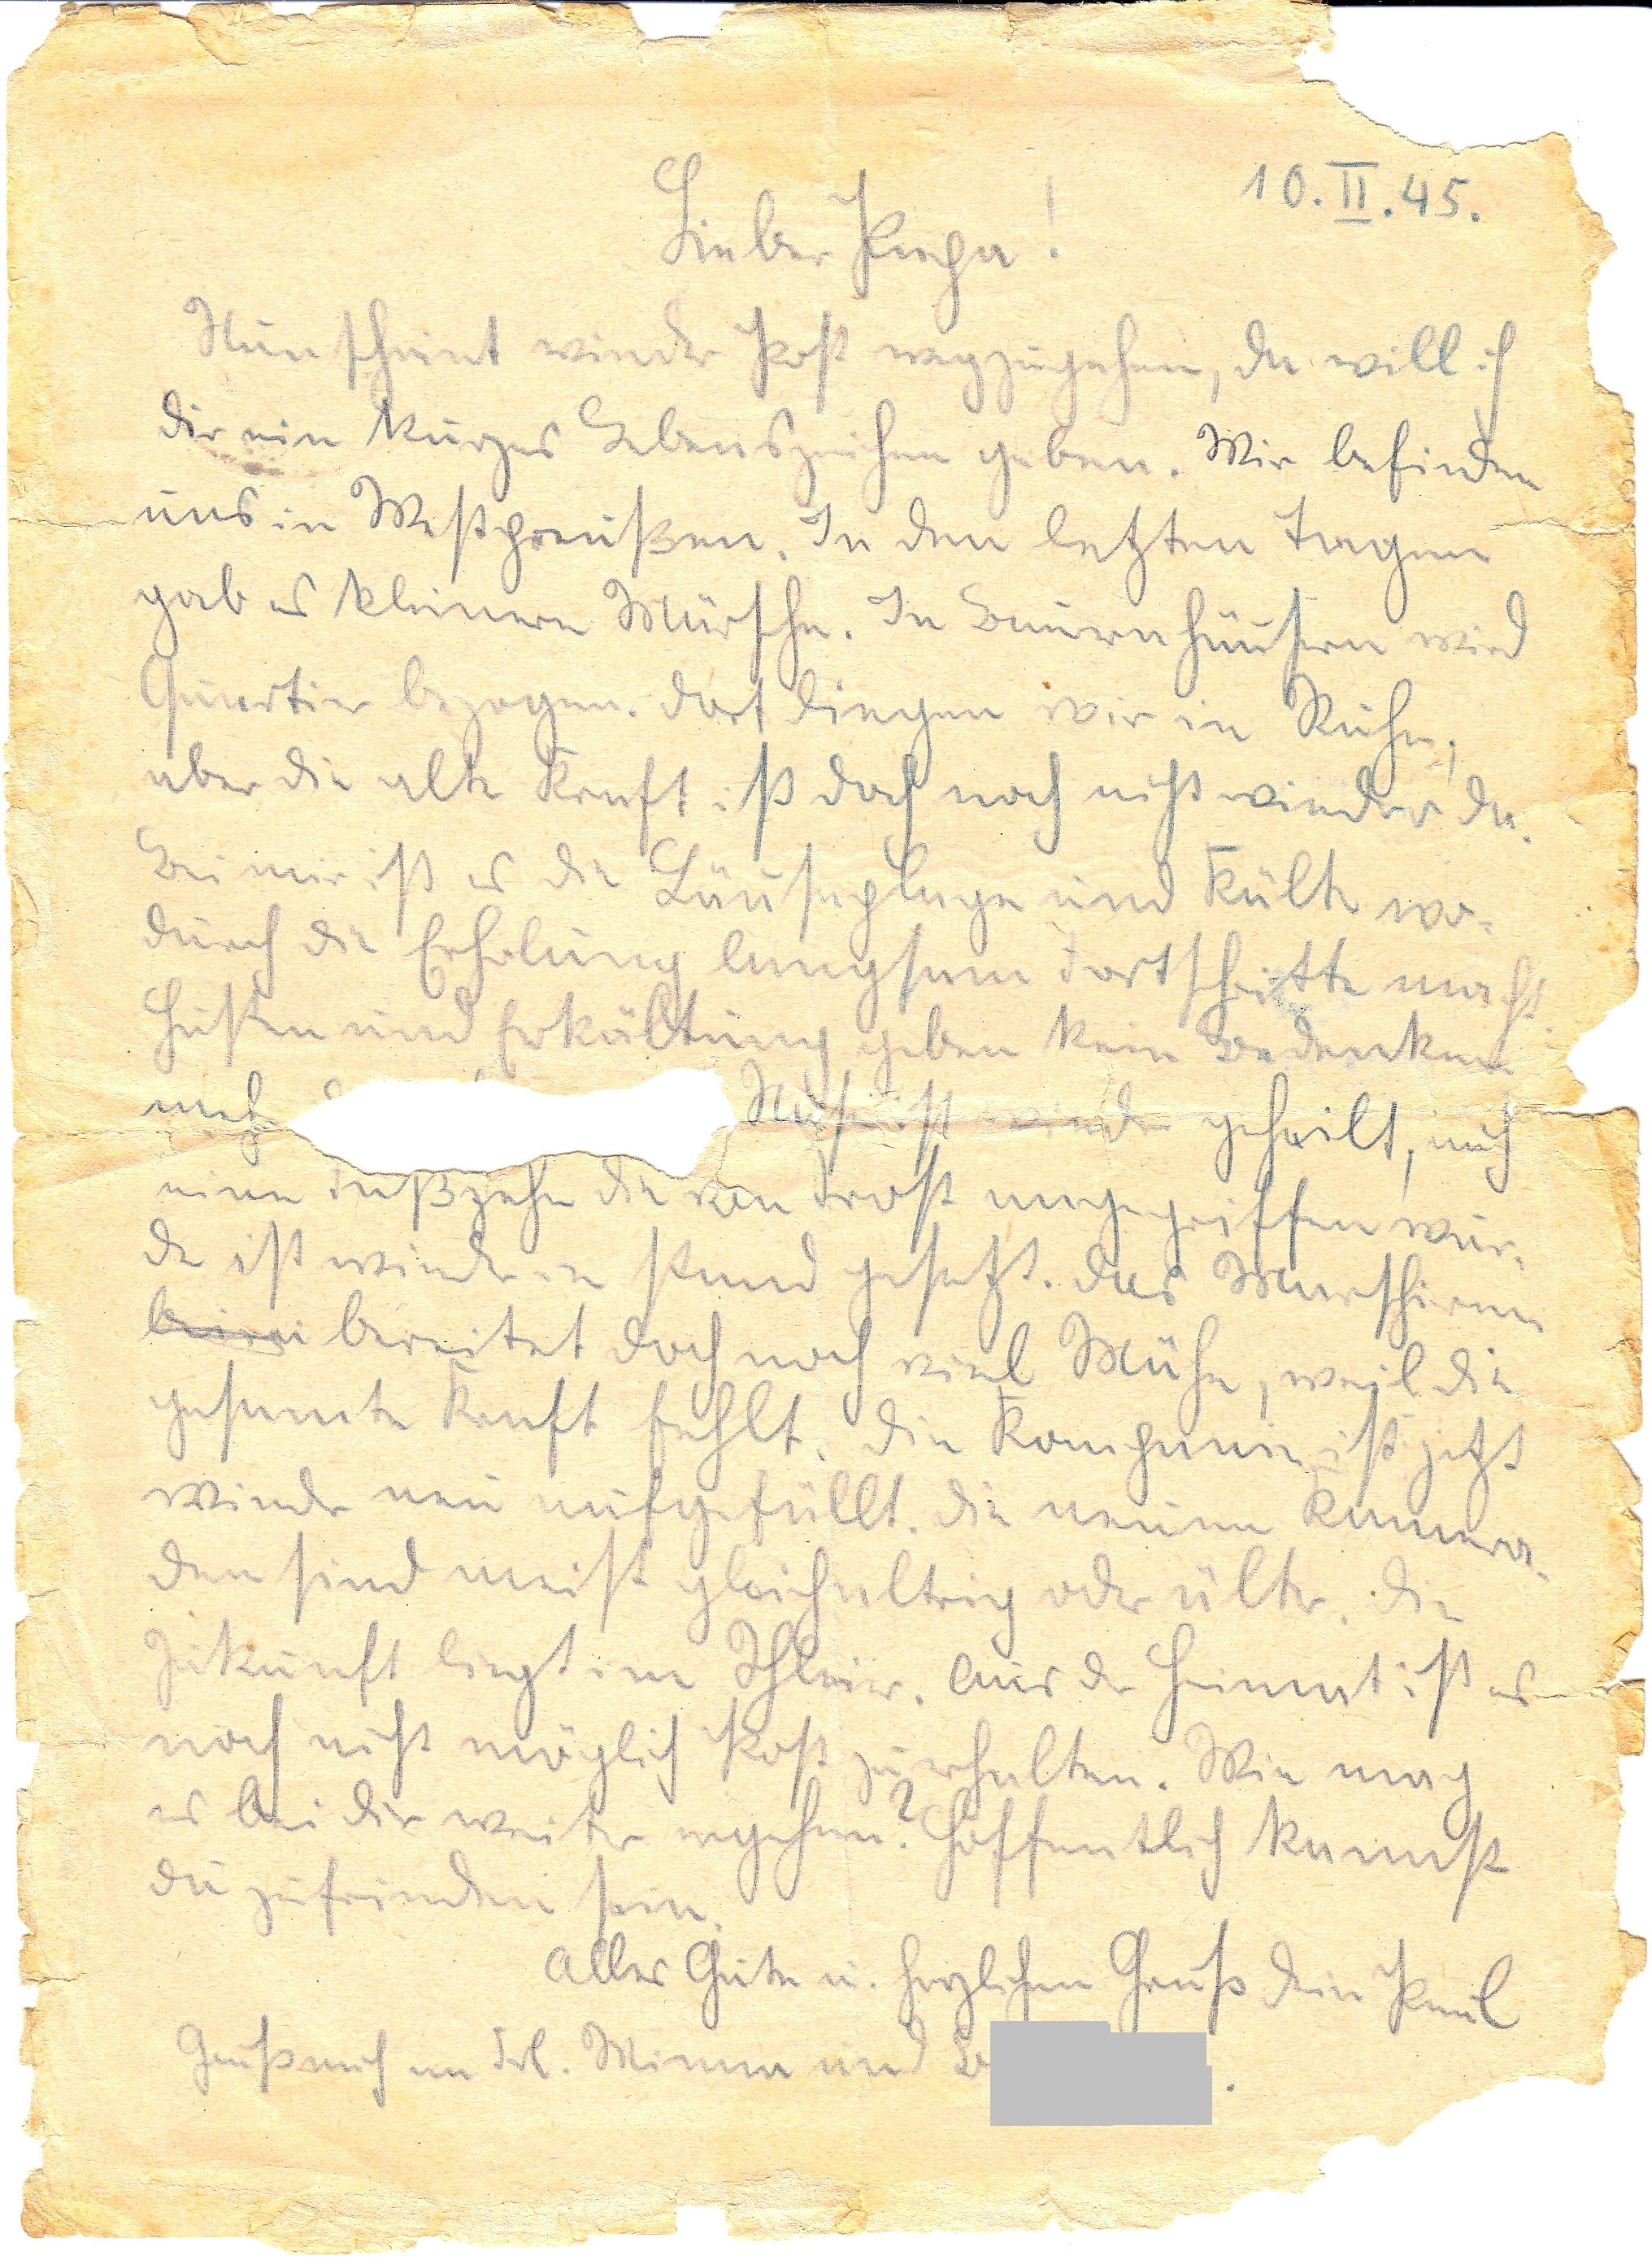 10.II.45.
Lieber Papa!
Nun scheint wieder Post wegzugehen, da will ich
dir ein kurzes Lebenszeichen geben. Wir befinden
uns in Westpreußen. In den letzten Tagen
gab es kleinere Märsche. In Bauernhäusern wird
Quartier bezogen. Dort liegen wir in Ruhe,
aber die alte Kraft ist doch noch nicht wieder da.
Bei mir ist es die Läuseplage und Kälte wo-
durch die Erholung langsam Fortschritte macht.
Husten und Erkältung geben kein Bedenken
mehr Nase ist wieder geheilt, auch
eine Fußzehe die von Frost angegriffen wur-
de ist wieder in stand gesetzt. Das Marschieren
bereitet doch noch viel Mühe, weil die
gesamte Kraft fehlt. Die Kompanie ist jetzt
wieder neu aufgefüllt. Die neuen Kamera-
den sind meist gleichaltrig oder älter. Die
Zukunft liegt im Schleier. Aus der Heimat ist es
noch nicht möglich Post zu erhalten. Wie mag
es bei dir weiter ergehen? Hoffentlich kannst
du zufrieden sein.
Alles Gute u. herzlichen Gruß dein Paul
Gruß auch an Frl. Minna und